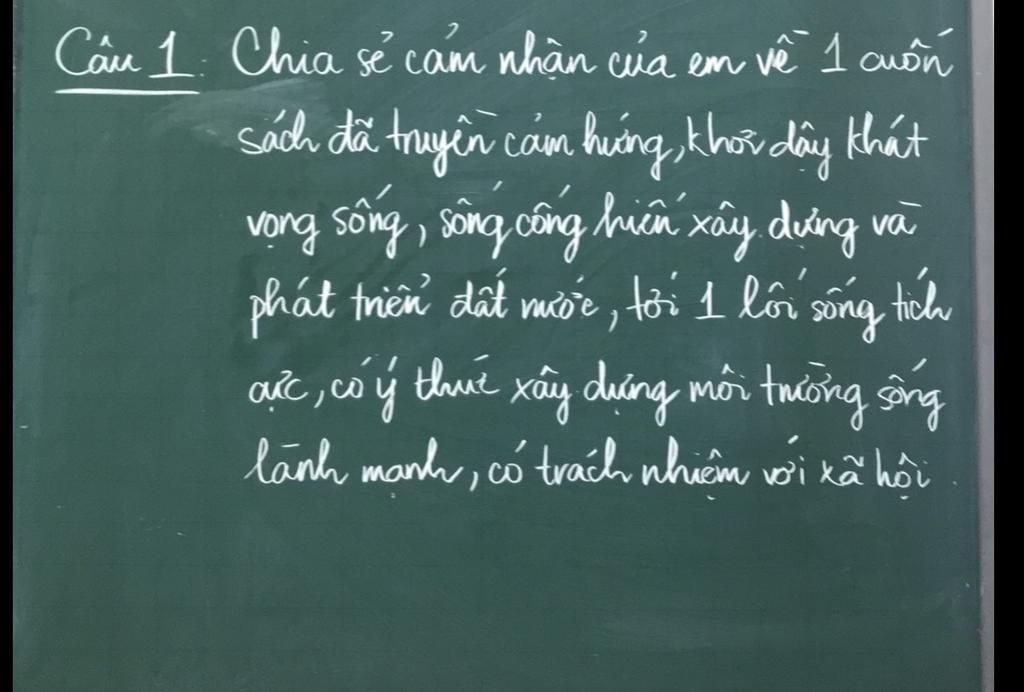 Câu 1: Chia sẻ cảm nhận của em về 1 cuốn
sách đã truyền cảm hứng, khơi dậy khát
vọng sống, sống cống hiến xây dựng và
phát triển đất nước, tới 1 lối sống tích
cực, có ý thức xây dựng môi trường sống
lành mạnh, có trách nhiệm với xã hội.